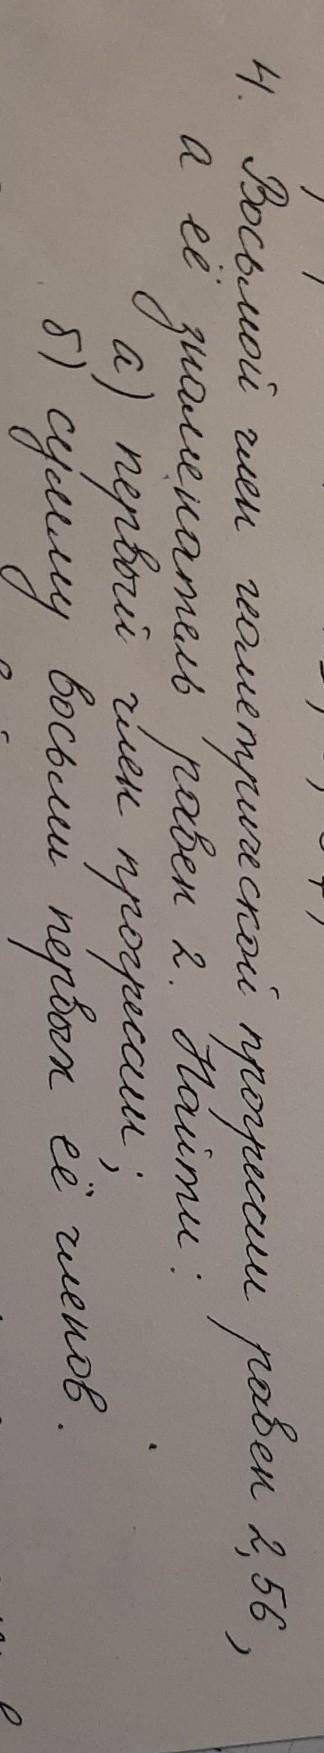 4. Восьмой член геометрической прогрессии равен 2,56,
а её знаменатель равен 2. Найти:
а) первый член прогрессии;
б) сумму восьми первых её членов.